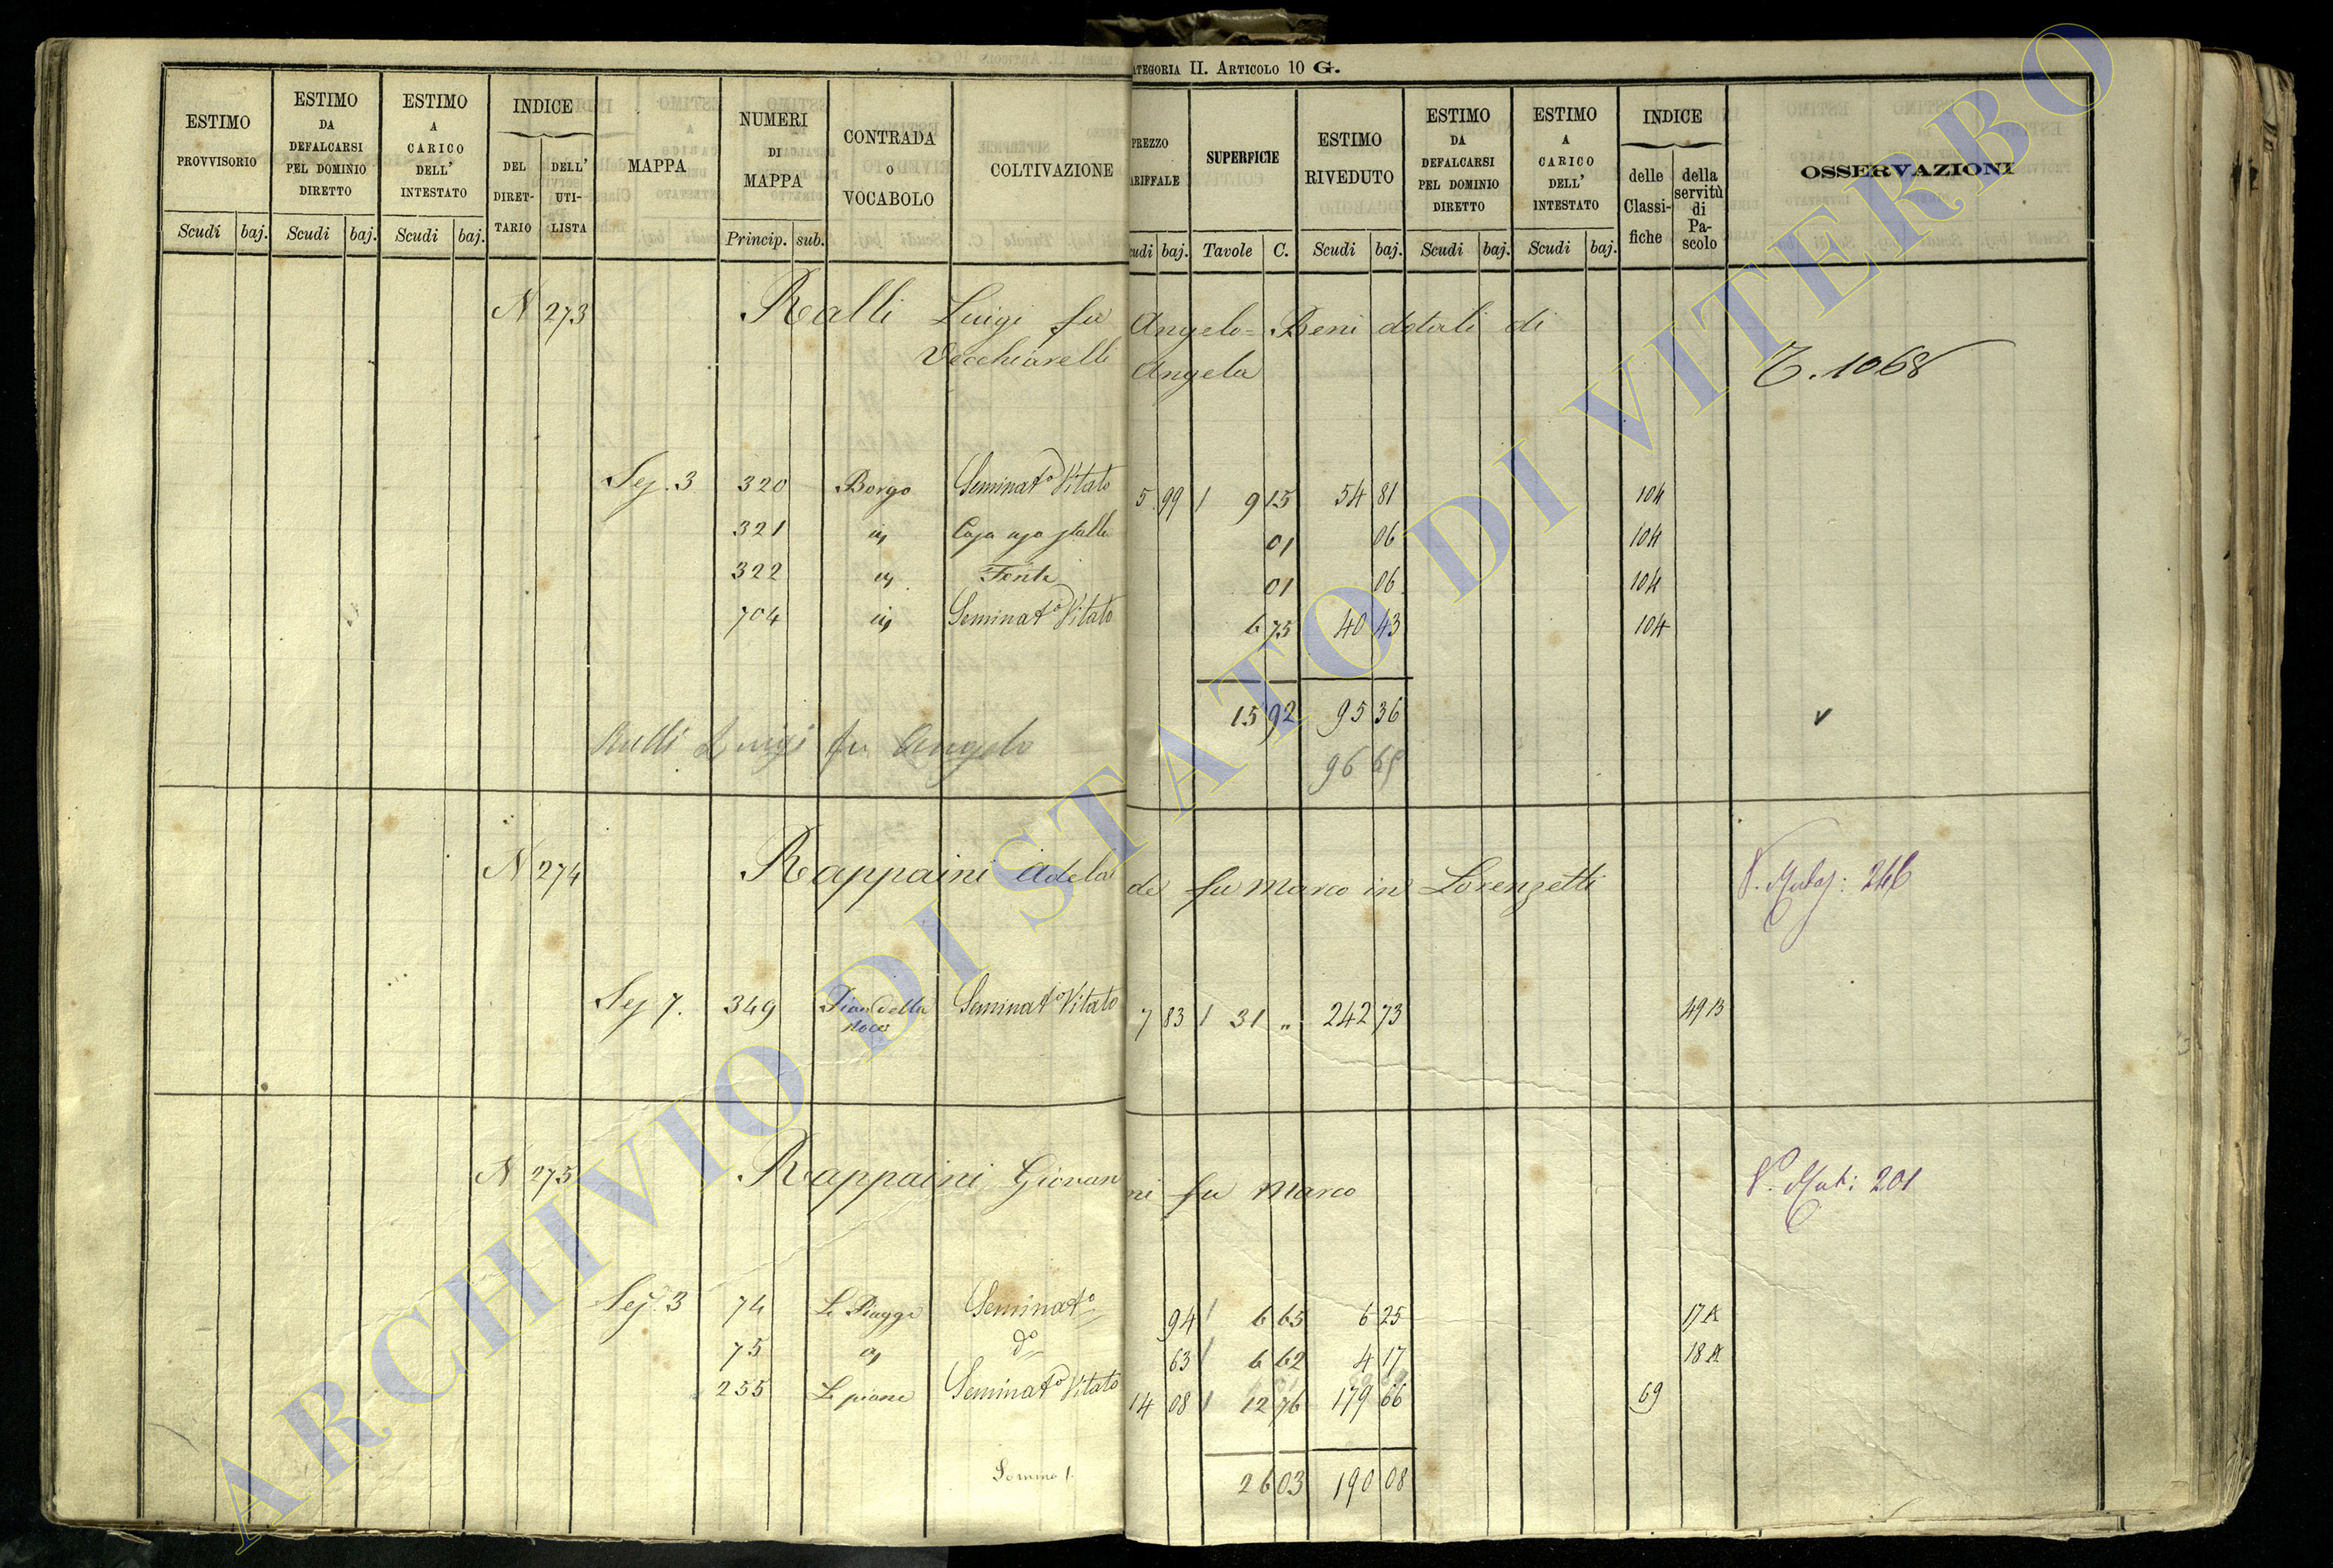 CATEGORIA II. ARTICOLO 10 G.
ESTIMO PROVVISORIO
Scudi baj.
ESTIMO DA DEFALCARSI PEL DOMINIO DIRETTO
Scudi baj.
ESTIMO A CARICO DELL' INTESTATO
Scudi baj.
INDICE
DEL DIRETTARIO
DELL' UTILISTA
MAPPA
NUMERI DI MAPPA
Princip. sub.
CONTRADA O VOCABOLO
COLTIVAZIONE
PREZZO TARIFFALE
Scudi baj.
SUPERFICIE
Tavole C.
ESTIMO RIVEDUTO
Scudi baj.
ESTIMO DA DEFALCARSI PEL DOMINIO DIRETTO
Scudi baj.
ESTIMO A CARICO DELL' INTESTATO
Scudi baj.
INDICE
delle Classifiche
della servitù di Pascolo
OSSERVAZIONI
N 273 Ralli Luigi fu Angelo = Beni dotali di
Vecchiarelli Angela
T. 1068
Sez. 3 320 Borgo Seminato Vitato 5 99 9 15 54 81 104
321 Casa uso stalla 01 06 104
322 01 06 104
704 Seminato Vitato 6 75 40 43 104
15 92 95 36
Rulli Luigi fu Angelo
N 274 Rappaini Adelaide fu Marco in Lorenzetti
246
Sez. 7. 349 Pian della Noce Seminato Vitato 7 83 31 " 242 73 49 B
N 275 Rappaini Giovanni fu Marco
201
Sez. 3 74 Le Piagge Seminato 94 6 65 6 25 17 A
75 do 63 6 62 4 17 18 A
255 Le piane Seminato Vitato 14 08 12 76 179 66 69
26 03 190 08
ARCHIVIO DI STATO DI VITERBO